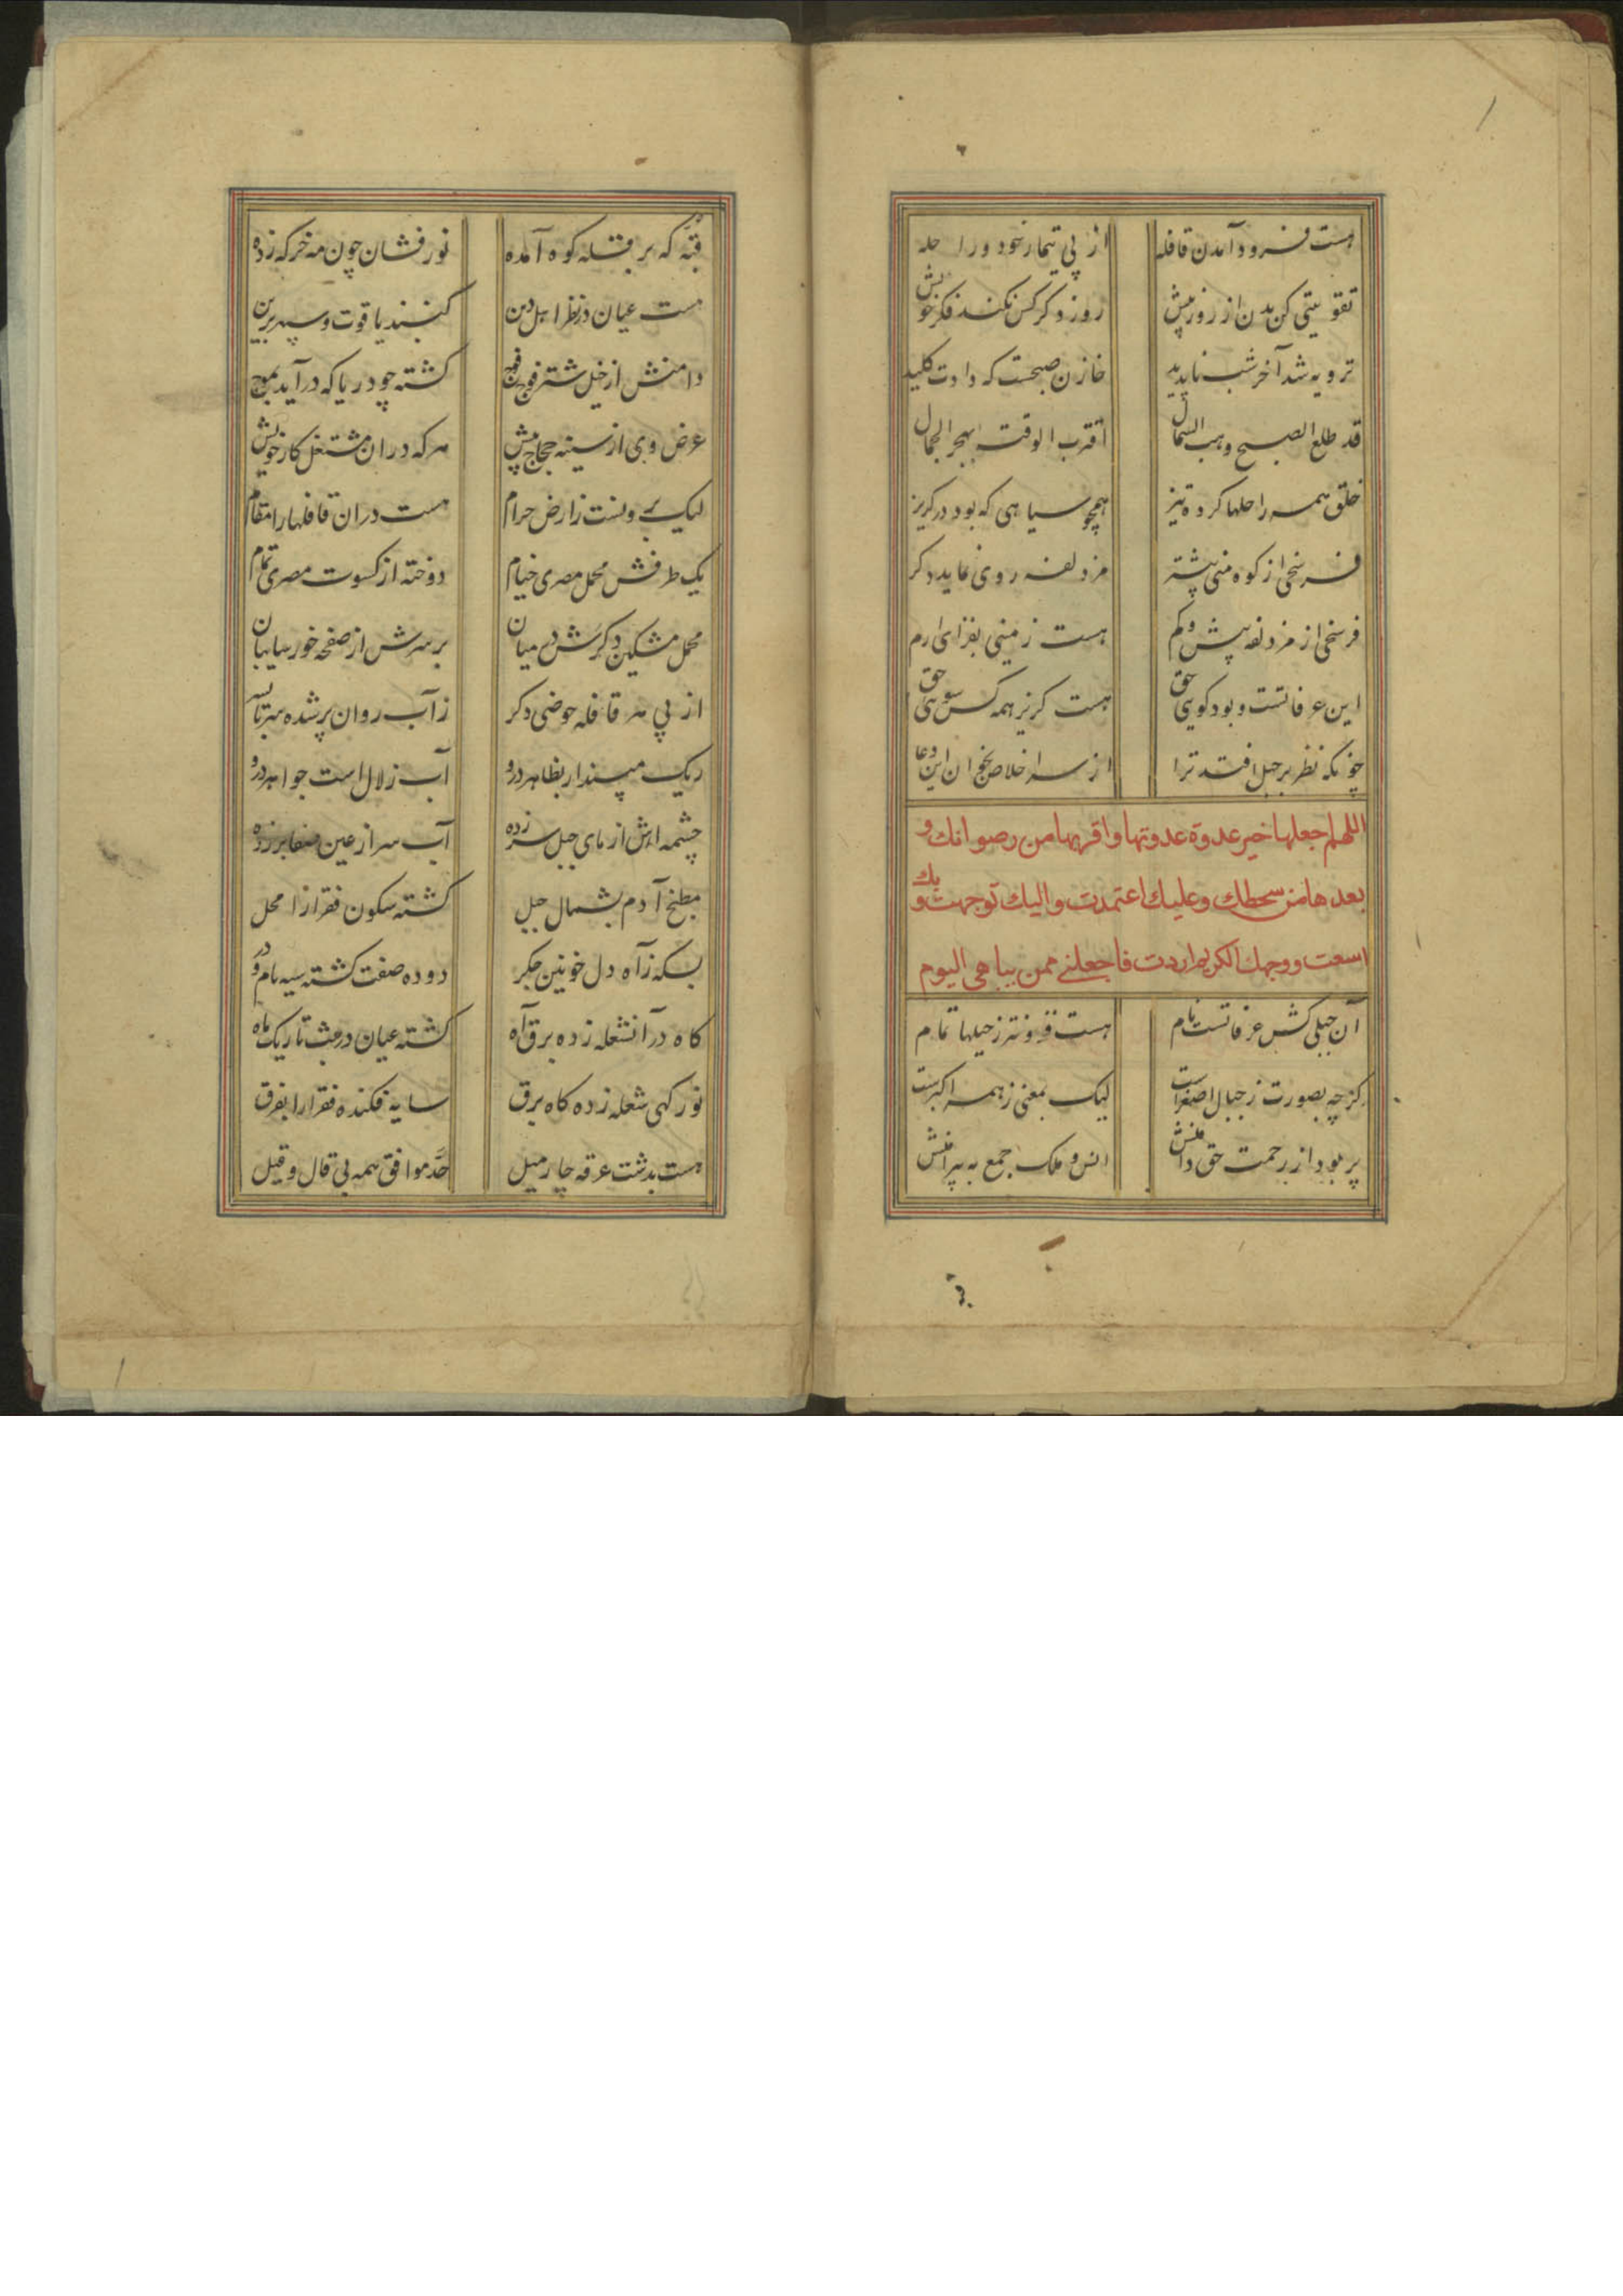 هست فرود آمدن قافله از پی تیمار خود و راحله
تقویتی کن بدن از زور پیش روز دکر کس نکند فکر خویش
ترویه شد آخر شب ناپدید خازن صبحست که دادت کلید
قد طلع الصبح وهب الشمال اقترب الوقت بهجر الجمال
خلق همه راحلها کرده تیز همچو سپاهی که بود در کریز
فرسخی از کوه منی پیشتر مزدلفه روی نماید دکر
فرسخی از مزدلفه پیش و کم هست زمینی بفزای ارم
این عرفاتست و بود کوی حق هست کریز همه کس سوی حق
چونکه نظر بر جبل افتد ترا از سر اخلاص بخوان این دعا
اللهم اجعلها خیر عدوة عدوتها واقربها من رضوانك و
بعدها من سخطك وعلیك اعتمدت والیك توجهت و بك
اسعت ووجهك الکریم اردت فاجعلنی ممن یباهی الیوم
آن جبلی کش عرفاتست نام هست فزونتر ز جبلها تمام
کرچه بصورت ز جبال اصغرست لیک بمعنی ز همه اکبرست
پر بود از رحمت حق دامنش انس و ملک جمع به پیرامنش
قبّه که بر قلّه کوه آمده نور فشان چون مه خرکه زده
هست عیان در نظر اهل دین کنبد یاقوت و سپهر برین
دامنش از خیل شتر فوج فوج کشته چو دریا که در آید بموج
عرض وی از سینه حجاج بیش هر که در آن مشتغل کار خویش
لیک برونست ز ارض حرام هست در آن قافلها را مقام
یک طرفش محمل مصری خیام دوخته از کسوت مصری تمام
محمل مشکین دکرش در میان بر سرش از صفحه خور سایبان
از پی هر قافله حوضی دکر ز آب روان پر شده سر تا بسر
ریک مپندار بظاهر درو آب زلال است جواهر درو
چشمه اش از پای جبل سر زده آب سر از عین صفا بر زده
مطبخ آدم بشمال جبل کشته سکون فقرا را محل
بسکه ز آه دل خونین جکر دوده صفت کشته سیه بام و در
کاه در آن شعله زده برق آه کشته عیان در شب تاریک ماه
نور کهی شعله زده کاه برق سایه فکنده فقرا را بفرق
هست بدشت عرفه چار میل حدّ موافق همه بی قال و قیل